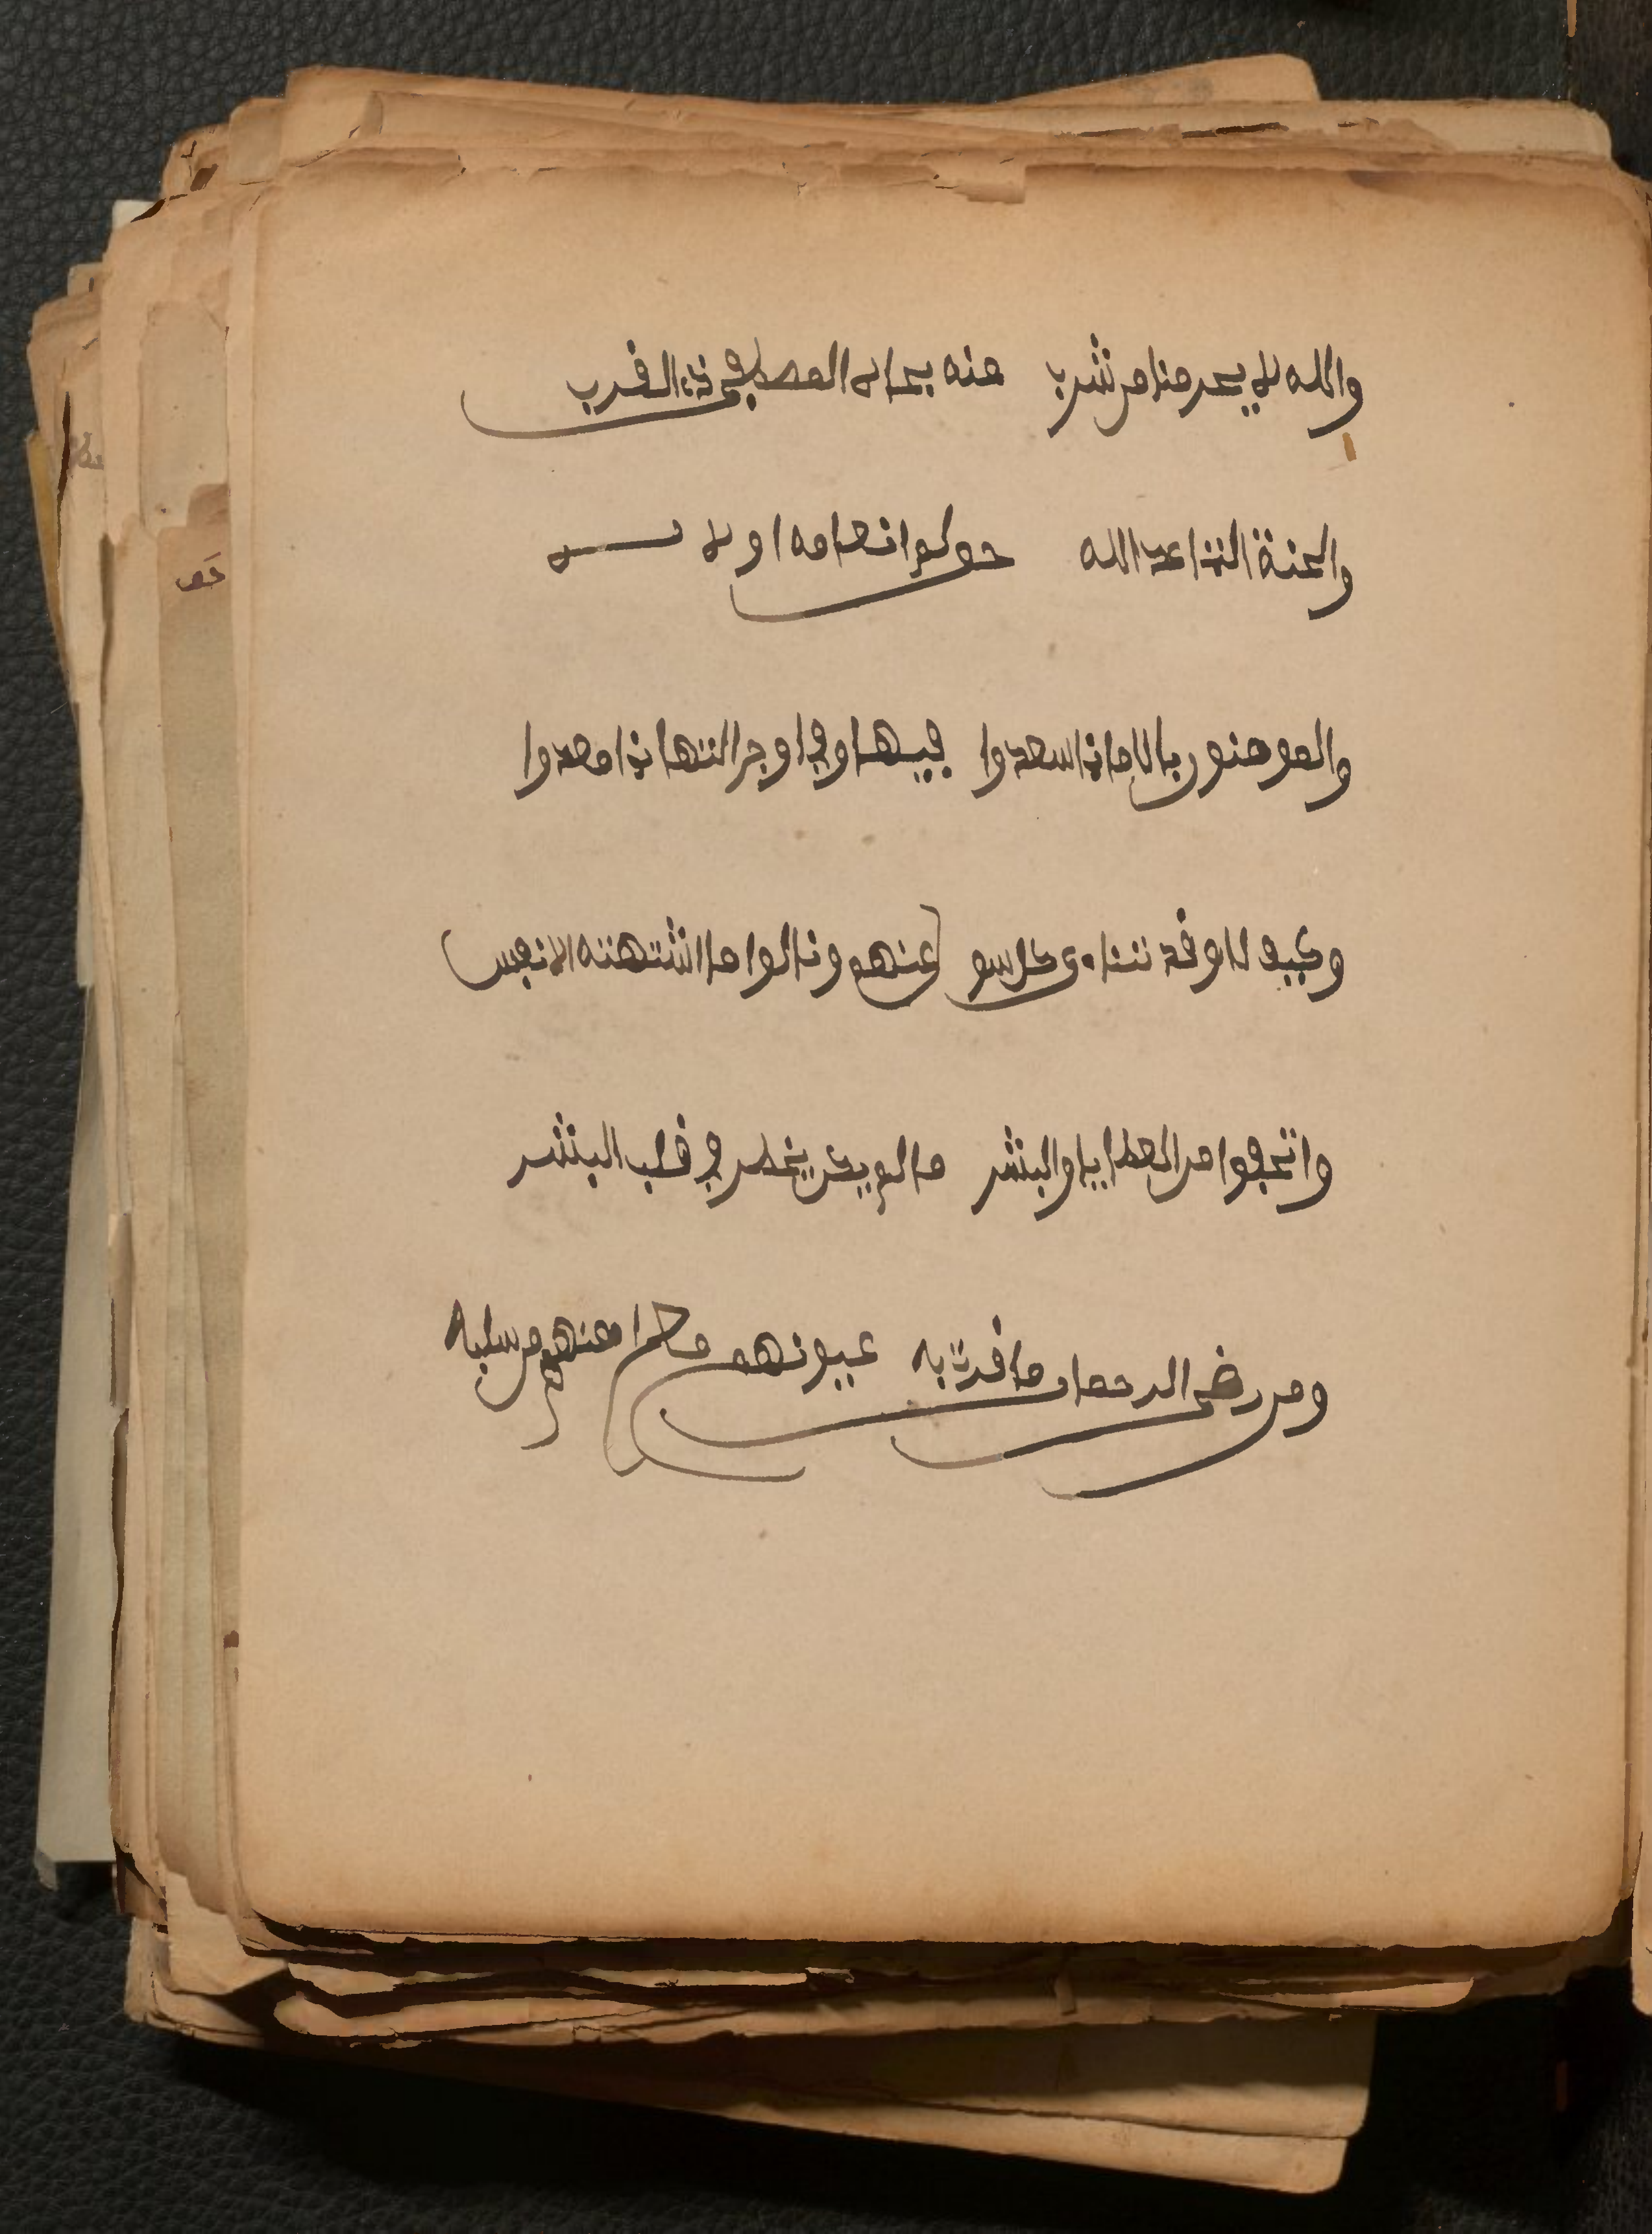 والله لا يحرمنا من شرب منه بجاه المصطفى ذي القرب
والجنة التي اعد الله حق لمن انعامه اولاه
والمومنون بالامان اسعدوا فيها وفي اوج التهاني امعدوا
وكيف لا وقد تناءى كل سو عنهم ونالوا ما اشتهته الانفس
واتحفوا من العطايا والبشر ما لم يكن يخطر في قلب البشر
ومن رضى الرحمان ما قرت به عيونهم منهم من سلبه